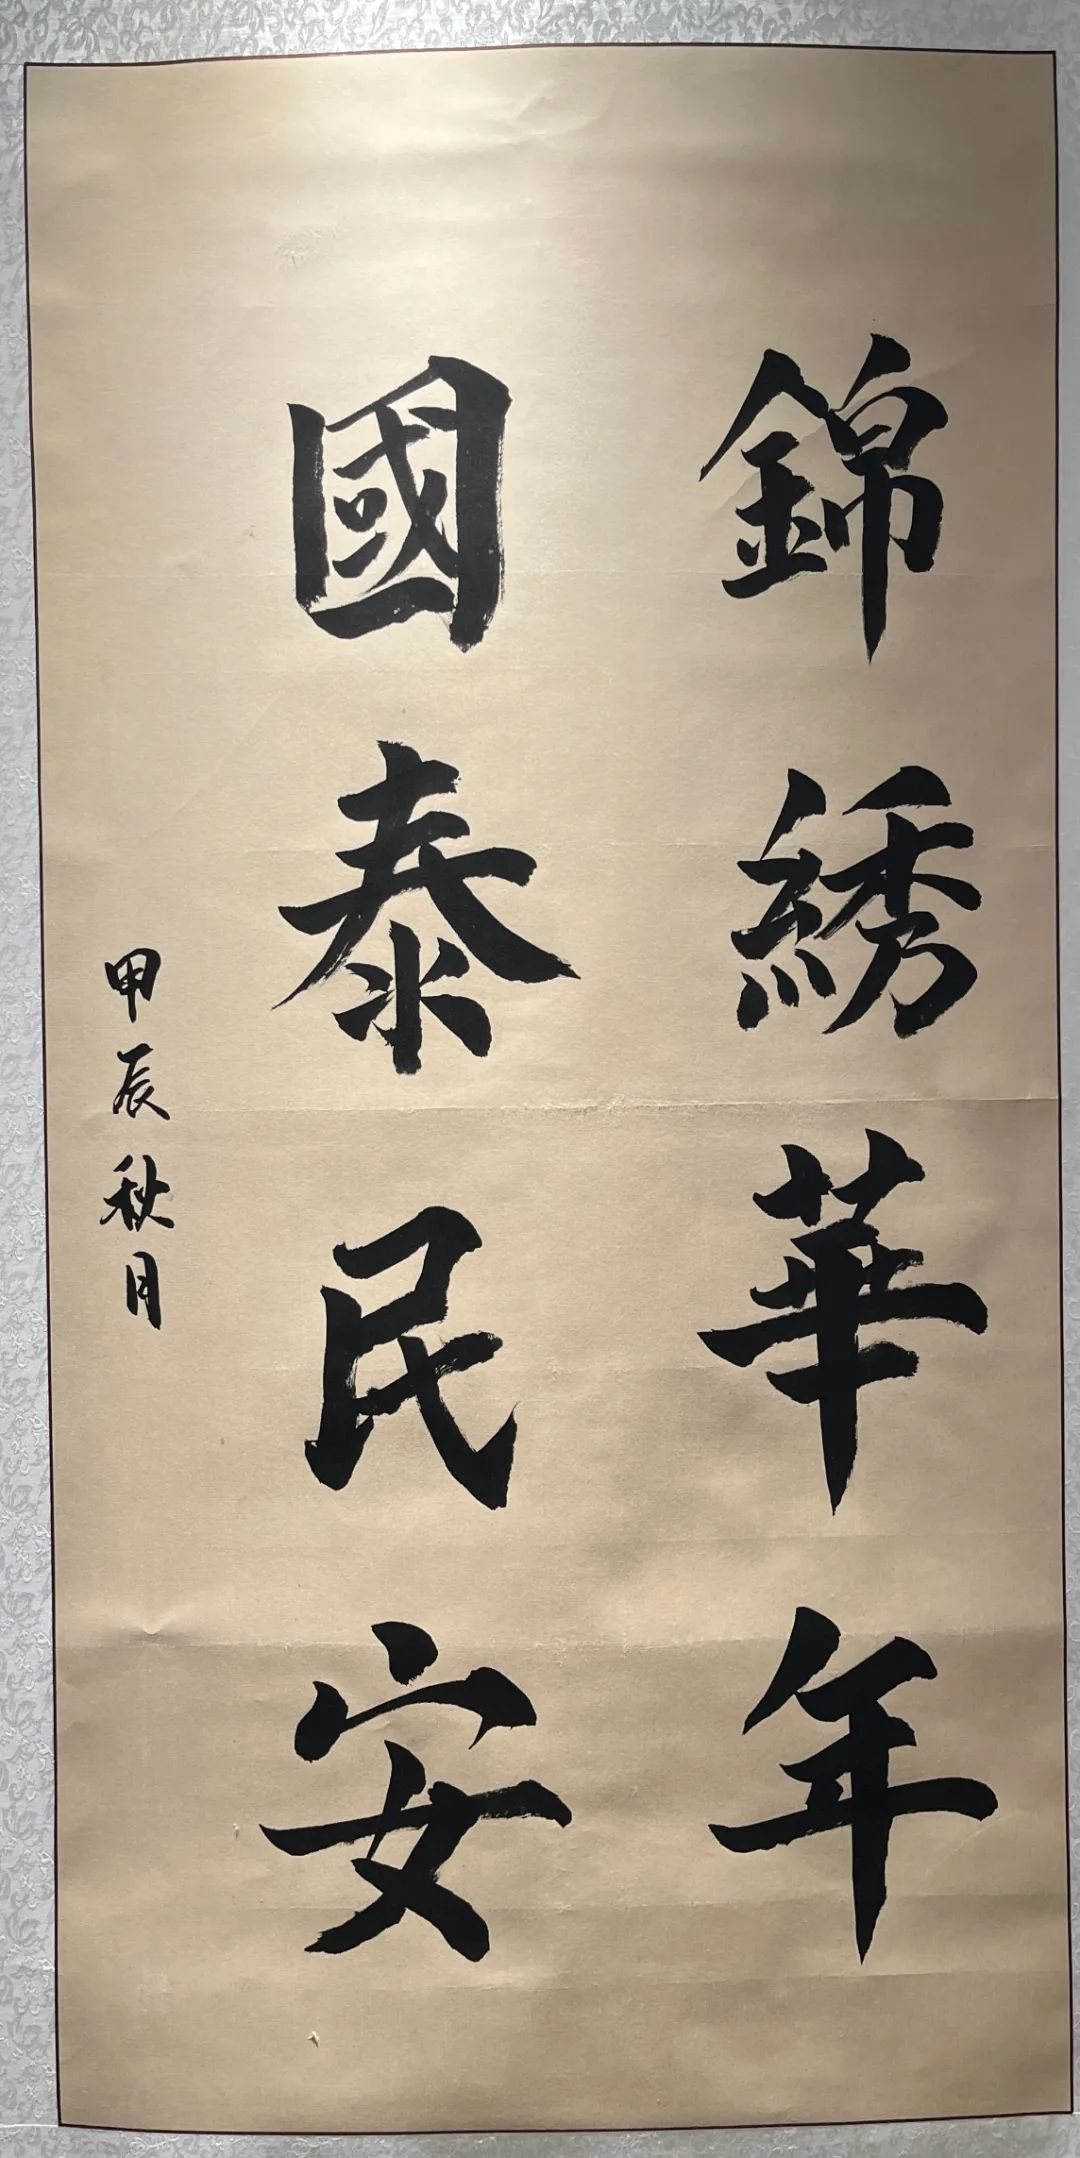 錦綉華年
國泰民安
甲辰秋月